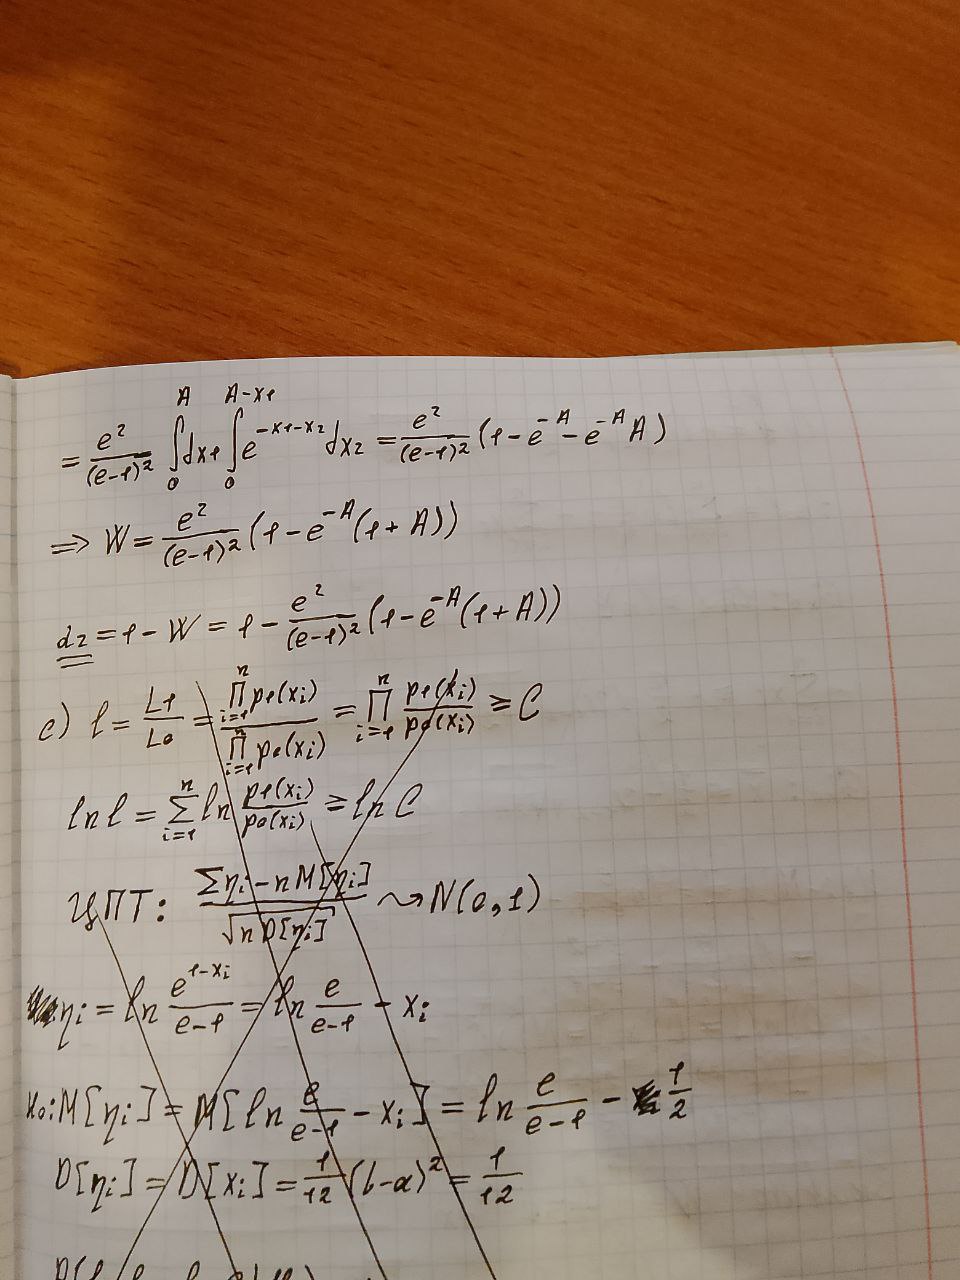 = e²/(e-1)² ∫₀^A dx₁ ∫₀^(A-x₁) e^(-x₁-x₂) dx₂ = e²/(e-1)² (1 - e^(-A) - e^(-A) A)
⇒ W = e²/(e-1)² (1 - e^(-A)(1 + A))
α₂ = 1 - W = 1 - e²/(e-1)² (1 - e^(-A)(1 + A))
c) l = L₁/L₀ = ∏_(i=1)^n p₁(x_i) / ∏_(i=1)^n p₀(x_i) = ∏_(i=1)^n p₁(x_i)/p₀(x_i) ≥ C
ln l = ∑_(i=1)^n ln p₁(x_i)/p₀(x_i) ≥ ln C
ЦПТ: (∑η_i - n M[η_i]) / √(n D[η_i]) ⇝ N(0,1)
η_i = ln e^(1-x_i)/(e-1) = ln e/(e-1) - x_i
H₀: M[η_i] = M[ln e/(e-1) - x_i] = ln e/(e-1) - 1/2
D[η_i] = D[x_i] = 1/12 (b-a)² = 1/12